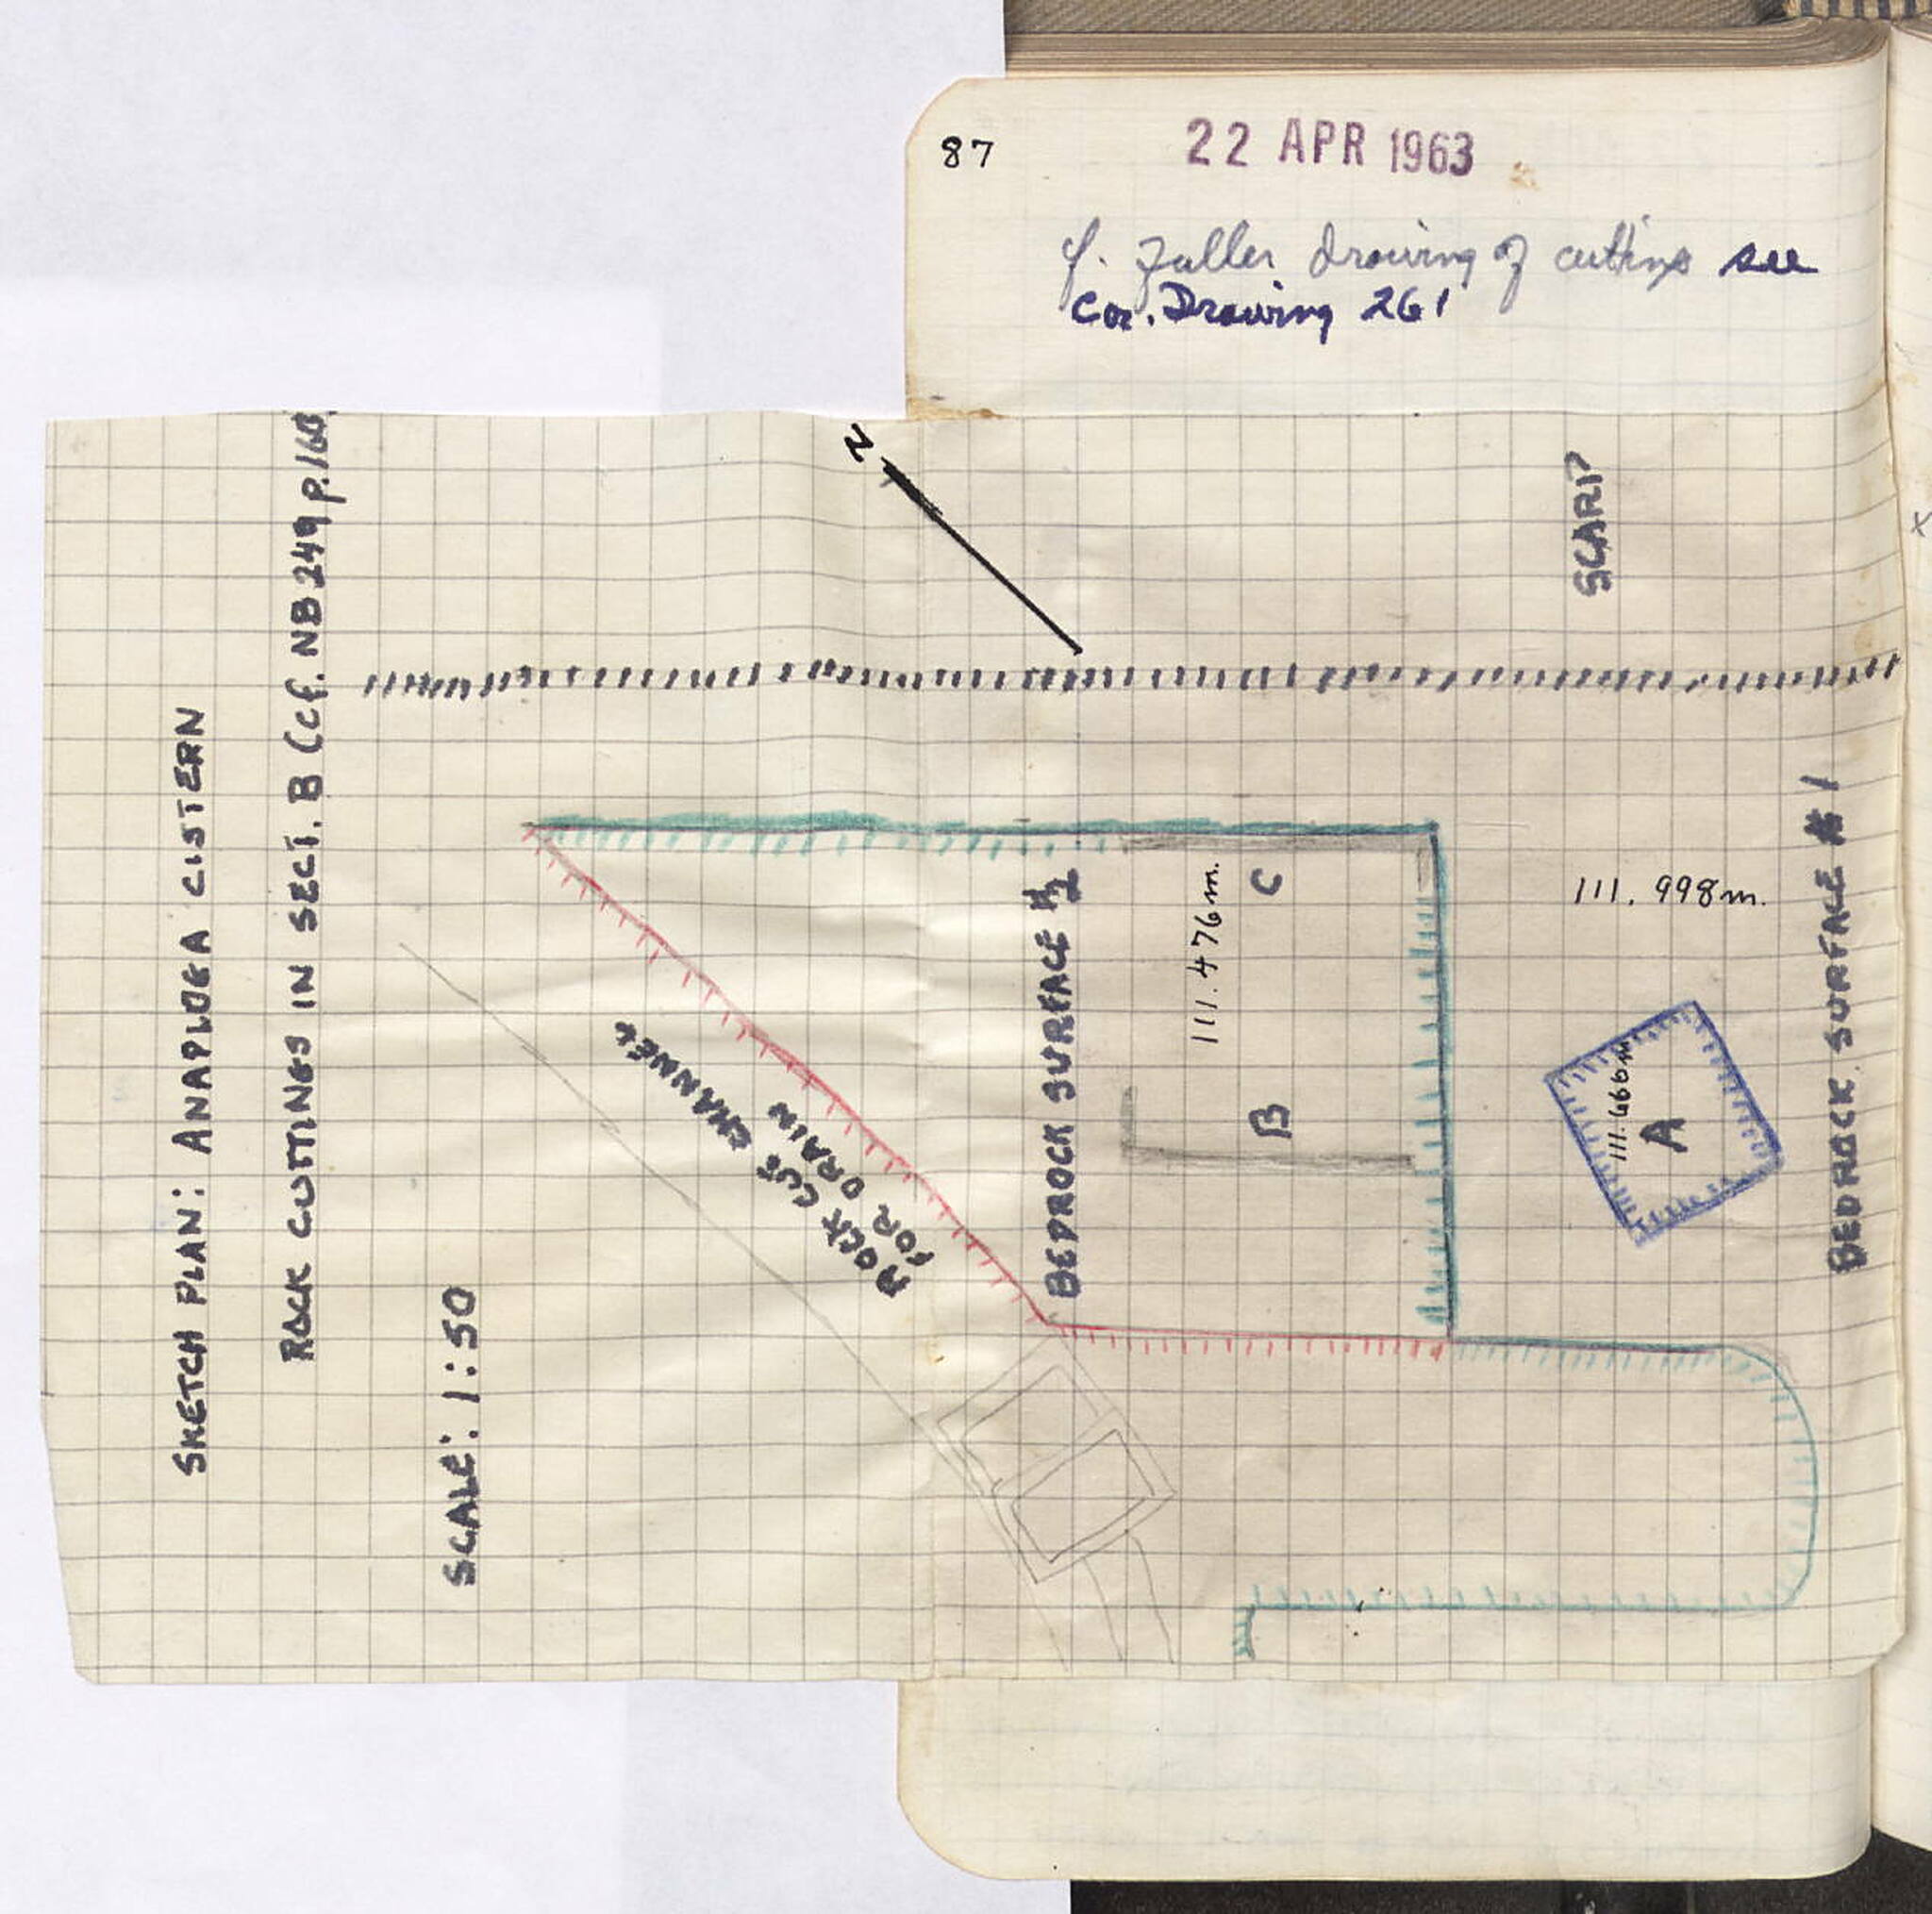 87
22 APR 1963
f. Fuller drawing of cuttings see
Cor. Drawing 261
N
SCARP
SKETCH PLAN: ANAPLOGA CISTERN
ROCK CUTTINGS IN SECT. B (cf. NB 249 p.160
SCALE: 1:50
ROCK CUT CHANNEL
FOR DRAIN
BEDROCK SURFACE #2
111.476m.
C
B
111.998m.
111.666m
A
BEDROCK SURFACE #1